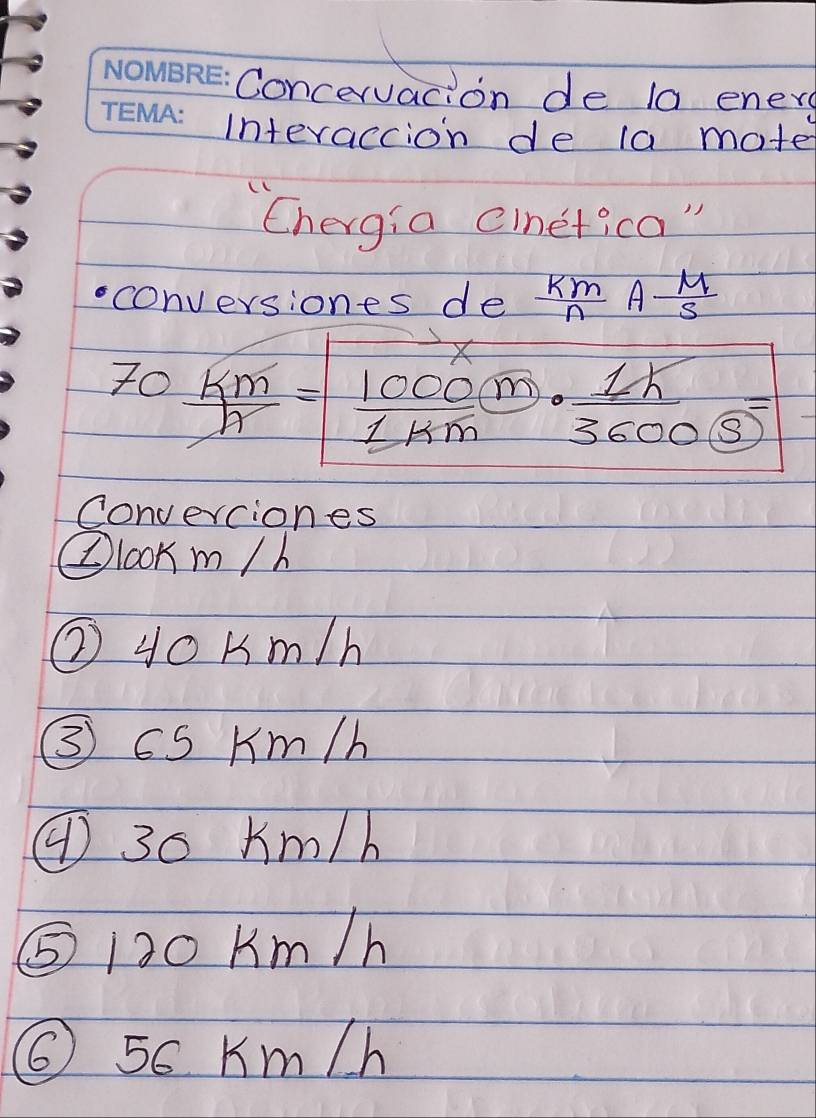 NOMBRE: Concervación de la energ
TEMA: Interacción de la mate
"Energía cinética"
•conversiones de Km/h A M/s
70 Km/h = 1000 m / 1 Km x • 1h / 3600 s =
Converciones
① 100K m/h
② 40 Km/h
③ 65 Km/h
④ 30 Km/h
⑤ 120 Km/h
⑥ 56 Km/h